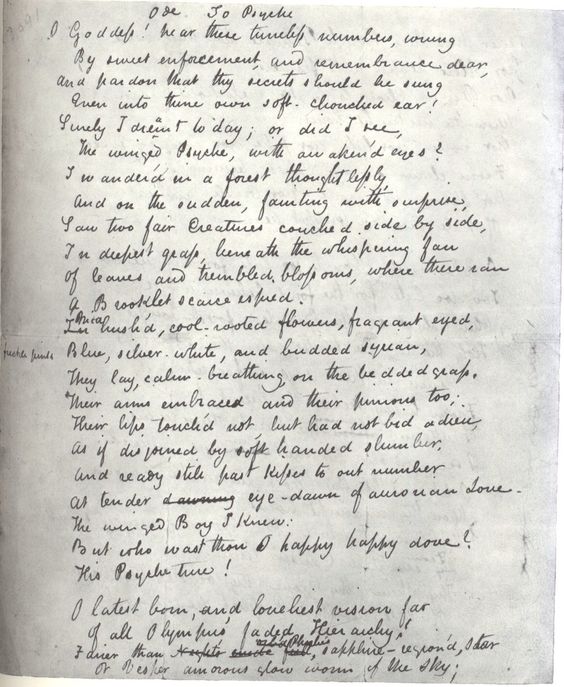 Ode. To Psyche
O Goddess! hear these tuneless numbers, wrung
By sweet enforcement, and remembrance dear,
And pardon that thy secrets should be sung
Even into thine own soft-chonched ear!
Surely I dreamt to day; or did I see,
The winged Psyche, with awaken'd eyes?
I wander'd in a forest thoughtlessly,
And on the sudden, fainting with surprise,
Saw two fair Creatures couched side by side,
In deepest grass, beneath the whispering fan
Of leaves and trembled blossoms, where there ran
A Brooklet scarce espied.
In hush'd, cool-rooted flowers, fragrant eyed,
freckle pink Blue, silver-white, and budded syrian,
They lay, calm-breathing, on the bedded grass.
Their arms embraced and their pinions too;
Their lips touch'd not, but had not bid adieu,
As if disjoined by soft handed slumber,
And ready still past kisses to out number
At tender dawning eye-dawn of aurorian Love.
The winged Boy I knew:
But who wast thou O happy happy dove?
His Psyche true!
O latest born, and loveliest vision far
Of all Olympus' faded Hierarchy!
Fairer than Phoebe's sapphire-region'd star
Or Vesper amorous glow worm of the sky;